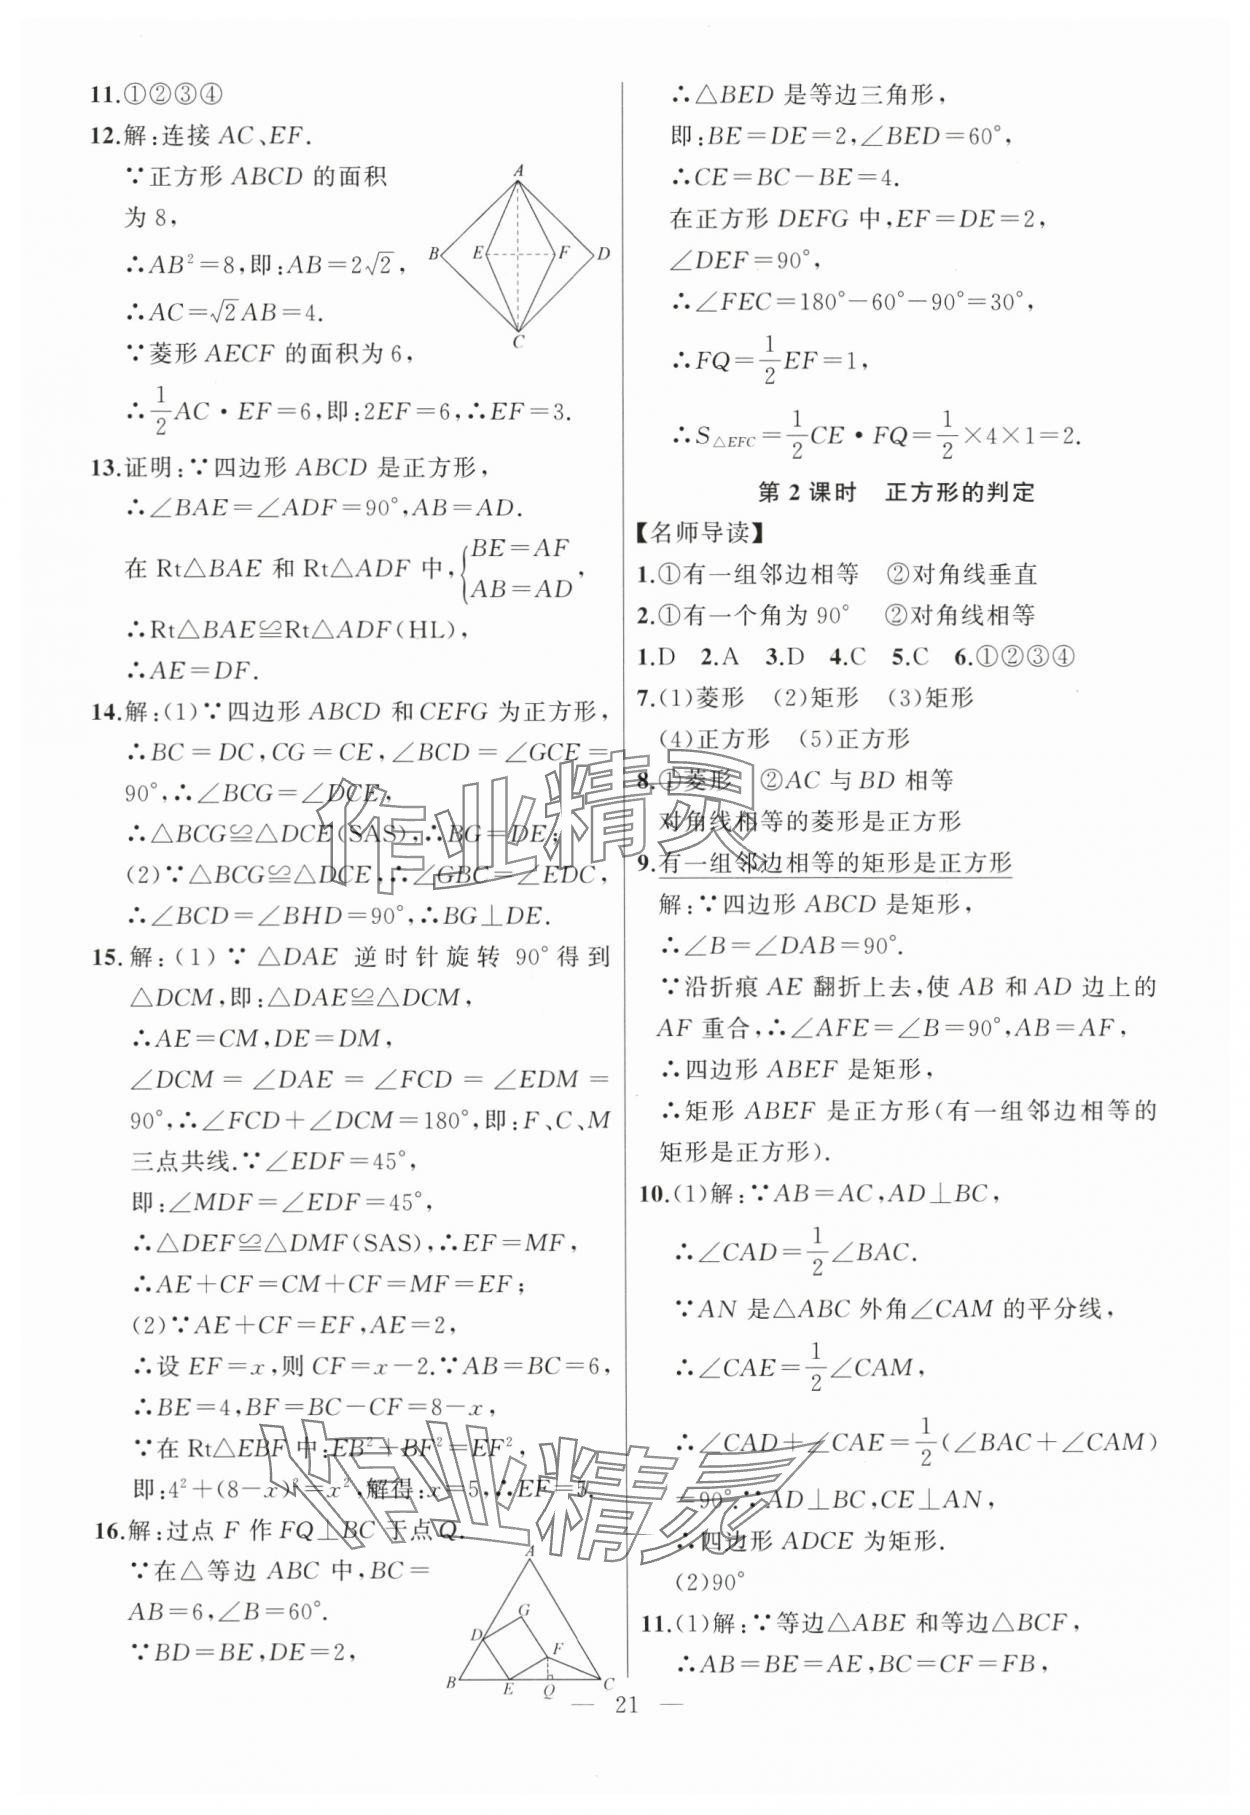 11.①②③④
12.解:连接 AC、EF.
∵正方形 ABCD 的面积
为 8,
∴AB²=8,即:AB=2√2,
∴AC=√2AB=4.
∵菱形 AECF 的面积为 6,
∴1/2 AC·EF=6,即:2EF=6,∴EF=3.
A
B
E
F
D
C
13.证明:∵四边形 ABCD 是正方形,
∴∠BAE=∠ADF=90°,AB=AD.
在 Rt△BAE 和 Rt△ADF 中,{BE=AF
AB=AD,
∴Rt△BAE≌Rt△ADF(HL),
∴AE=DF.
14.解:(1)∵四边形 ABCD 和 CEFG 为正方形,
∴BC=DC,CG=CE,∠BCD=∠GCE=
90°,∴∠BCG=∠DCE,
∴△BCG≌△DCE(SAS),∴BG=DE;
(2)∵△BCG≌△DCE,∴∠GBC=∠EDC,
∴∠BCD=∠BHD=90°,∴BG⊥DE.
15.解:(1)∵△DAE 逆时针旋转 90°得到
△DCM,即:△DAE≌△DCM,
∴AE=CM,DE=DM,
∠DCM=∠DAE=∠FCD=∠EDM=
90°,∴∠FCD+∠DCM=180°,即:F、C、M
三点共线.∵∠EDF=45°,
即:∠MDF=∠EDF=45°,
∴△DEF≌△DMF(SAS),∴EF=MF,
∴AE+CF=CM+CF=MF=EF;
(2)∵AE+CF=EF,AE=2,
∴设 EF=x,则 CF=x-2.∵AB=BC=6,
∴BE=4,BF=BC-CF=8-x,
∵在 Rt△EBF 中:EB²+BF²=EF²,
即:4²+(8-x)²=x²,解得:x=5,∴EF=5.
16.解:过点 F 作 FQ⊥BC 于点 Q.
∵在△等边 ABC 中,BC=
AB=6,∠B=60°.
∵BD=BE,DE=2,
A
G
D
F
B
E
Q
C
∴△BED 是等边三角形,
即:BE=DE=2,∠BED=60°,
∴CE=BC-BE=4.
在正方形 DEFG 中,EF=DE=2,
∠DEF=90°,
∴∠FEC=180°-60°-90°=30°,
∴FQ=1/2 EF=1,
∴S△EFC=1/2 CE·FQ=1/2×4×1=2.
第 2 课时 正方形的判定
【名师导读】
1.①有一组邻边相等 ②对角线垂直
2.①有一个角为 90° ②对角线相等
1.D 2.A 3.D 4.C 5.C 6.①②③④
7.(1)菱形 (2)矩形 (3)矩形
(4)正方形 (5)正方形
8.①菱形 ②AC 与 BD 相等
对角线相等的菱形是正方形
9.有一组邻边相等的矩形是正方形
解:∵四边形 ABCD 是矩形,
∴∠B=∠DAB=90°.
∵沿折痕 AE 翻折上去,使 AB 和 AD 边上的
AF 重合,∴∠AFE=∠B=90°,AB=AF,
∴四边形 ABEF 是矩形,
∴矩形 ABEF 是正方形(有一组邻边相等的
矩形是正方形).
10.(1)解:∵AB=AC,AD⊥BC,
∴∠CAD=1/2∠BAC.
∵AN 是△ABC 外角∠CAM 的平分线,
∴∠CAE=1/2∠CAM,
∴∠CAD+∠CAE=1/2(∠BAC+∠CAM)
=90°.∵AD⊥BC,CE⊥AN,
∴四边形 ADCE 为矩形.
(2)90°
11.(1)解:∵等边△ABE 和等边△BCF,
∴AB=BE=AE,BC=CF=FB,
— 21 —
作业精灵
作业精灵